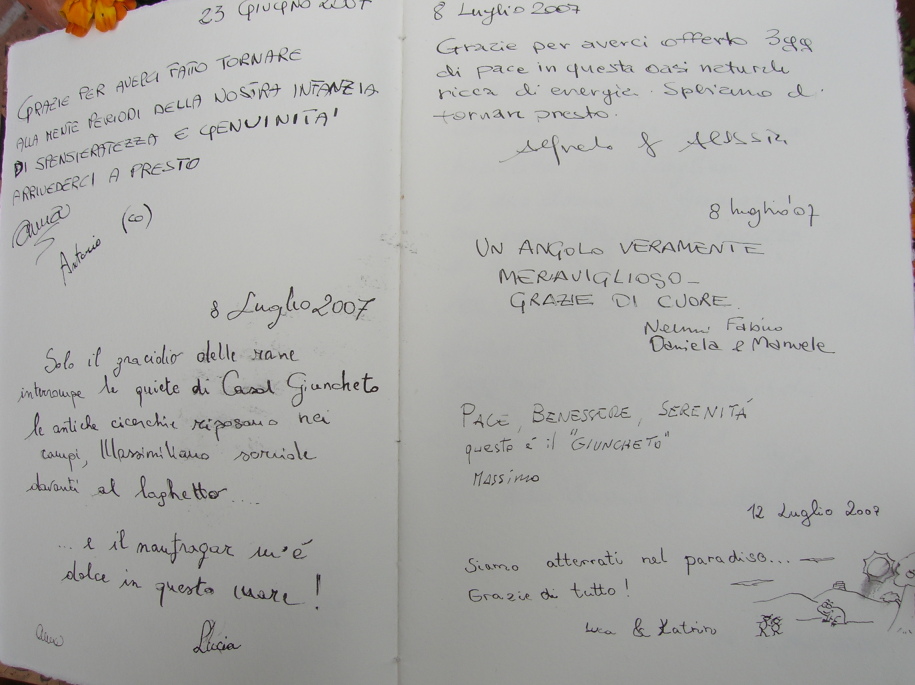 23 GIUGNO 2007
GRAZIE PER AVERCI FATTO TORNARE
ALLA MENTE PERIODI DELLA NOSTRA INFANZIA
DI SPENSIERATEZZA E GENUINITA'
ARRIVEDERCI A PRESTO
Anna
Antonio (CO)
8 Luglio 2007
Solo il gracidio delle rane
interrompe la quiete di Casal Giuncheto
le antiche cicerchie riposano nei
campi, Massimiliano sorride
davanti al laghetto....
... e il naufragar m'è
dolce in questo mare!
Lucia
8 Luglio 2007
Grazie per averci offerto 3gg
di pace in questa oasi naturale
ricca di energia. Speriamo di
tornare presto.
Alfredo & Alessia
8 luglio '07
UN ANGOLO VERAMENTE
MERAVIGLIOSO_
GRAZIE DI CUORE.
Fabino
Daniela e Manuele
PACE, BENESSERE, SERENITÁ
questo é il "GIUNCHETO"
MASSIMO
12 Luglio 2007
Siamo atterrati nel paradiso...
Grazie di tutto!
Luca & Katrin